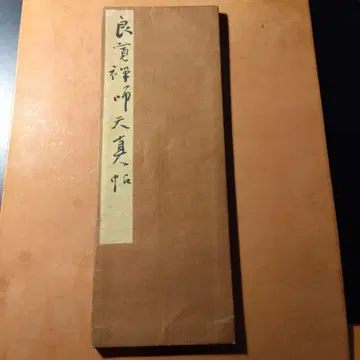 良寛禅師天真帖